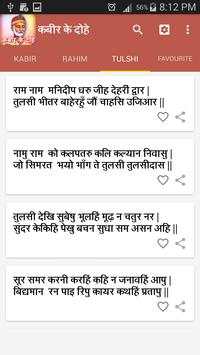 8:12 PM
कबीर के दोहे
KABIR RAHIM TULSHI FAVOURITE
राम नाम मनिदीप धरु जीह देहरी द्वार |
तुलसी भीतर बाहेरहुँ जौं चाहसि उजिआर ||
नामु राम को कलपतरु कलि कल्यान निवासु |
जो सिमरत भयो भाँग ते तुलसी तुलसीदास ||
तुलसी देखि सुबेषु भूलहिं मूढ़ न चतुर नर |
सुंदर केकिहि पेखु बचन सुधा सम असन अहि ||
सूर समर करनी करहिं कहि न जनावहिं आपु |
बिद्यमान रन पाइ रिपु कायर कथहिं प्रतापु ||